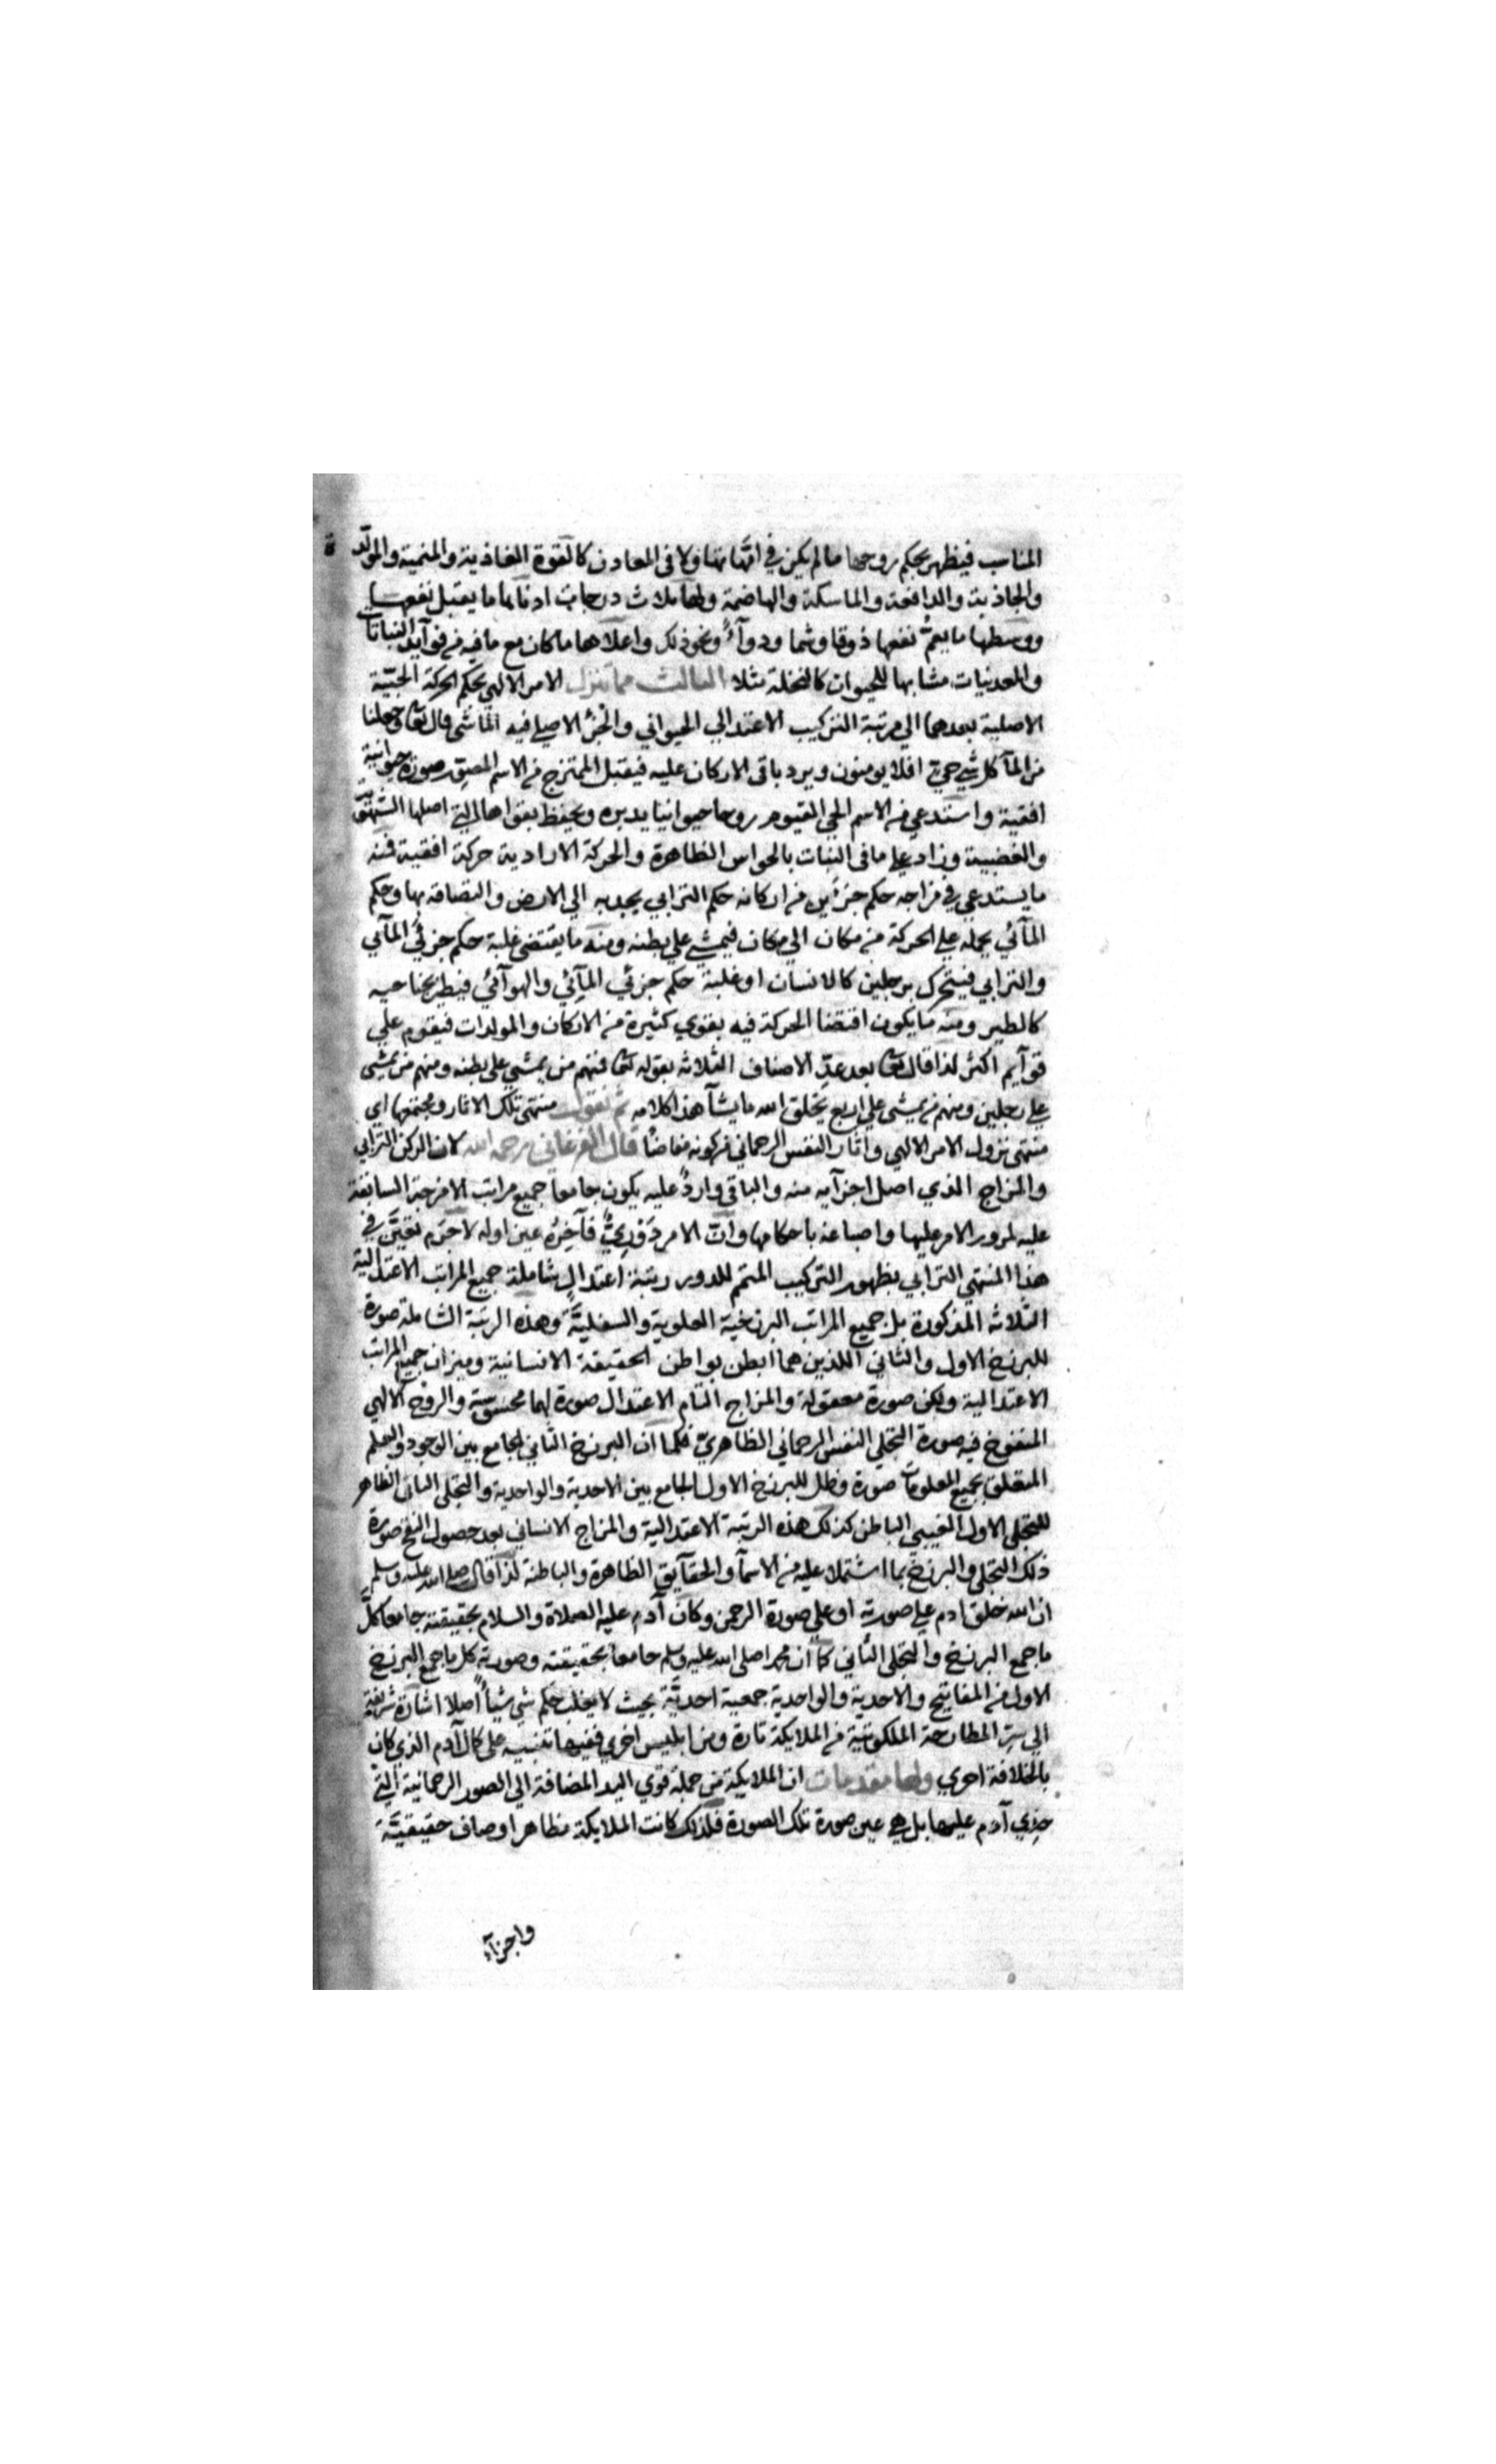 المناسب فيظهر بحكم روحها ما لم يكن في امهاتها ولا في المعادن كالقوة الغاذية والمنمية والمولدة
والجاذبة والدافعة والماسكة والهاضمة ولها ثلاث درجات ادناها ما يقبل نفعها
ووسطها ما يعم نفعها ذوقا وشما ودواءً ونحو ذلك واعلاها ما كان مع ما فيه من فوآيد النباتات
والمعدنيات مشابها للحيوان كالنخلة مثلا الثالث مما تنزل الامر الالهي بحكم الحركة الحبّيّة
الاصلية بعدهما الي مرتبة التركيب الاعتدالي الحيواني والجزْ الاصلي فيه المائي قال تعا وجعلنا
من المآ كل شي حي افلا يومنون ويرد باقي الاركان عليه فيقبل الممتزج من الاسم المصور صورة حيوانية
افقية واستدعي من الاسم الحي القيوم روحا حيوانيا يدبره ويحفظ بقواها التي اصلها الشهوية
والغضبية وزاد علي ما في النبات بالحواس الظاهرة والحركة الارادية حركة افقية فمنه
ما يستدعي في مزاجه حكم جزءين من اركانه حكم الترابي يجذبه الي الارض والتصاقه بها وحكم
المآئي يحمله علي الحركة من مكان الي مكان فيمشي علي بطنه ومنه ما يقتضي غلبة حكم جزئي المآئي
والترابي فيتحرك برجلين كالانسان او غلبة حكم جزئي المآئي والهوآئي فيطير بجناحيه
كالطير ومنه ما يكون اقتضا الحركة فيه بقوي كثيرة من الاركان والمولدات فيقوم علي
قوآيم اكثر لذا قال تعا بعد عدّ الاصناف الثلاثه بقوله تعا فمنهم من يمشي علي بطنه ومنهم من يمشي
علي رجلين ومنهم من يمشي علي اربع يخلق الله ما يشآ هذا كلامه ثم نقول منتهي تلك الاثار ومجتمعها اي
منتهي نزول الامر الالهي واثار النفس الرحماني من كونه مفاضا قال الفرغاني رحمه الله لان الركن الترابي
والمزاج الذي اصل اجزآيه منه والباقي واردٌ عليه يكون جامعا جميع مراتب الامزجة السابقة
عليه لمرور الامر عليها واصباغه باحكامها وانّ الامر دَوْريٌّ فآخِرُه عين اوله لا جَرَم تعيَّن في
هذا المنتهي الترابي بظهور التركيب المتمم للدور رتبة اعتدالٍ شاملة جميع المراتب الاعتدالية
الثلاثه المذكورة بل جميع المراتب البرزخية العلوية والسفليَّة وهذه الرتبة الشاملة صورة
للبرزخ الاول والثاني اللذين هما ابطن بواطن الحقيقة الانسانية وميزان جميع المراتب
الاعتدالية ولكن صورة معقولة والمزاج التام الاعتدال صورة لهما محسوسة والروح الالهي
المنفوخ فيه صورة التجلي النفس الرحماني الظاهري فكما ان البرزخ الثاني الجامع بين الوجود والعلم
المتعلق بجميع المعلومات صورة وظل للبرزخ الاول الجامع بين الاحدية والواحدية والتجلي الثاني الظاهر
للتجلي الاول الغيبي الباطن كذلك هذه الرتبة الاعتدالية والمزاج الانساني بعد حصول النفخ صورة
ذلك التجلي والبرزخ بما اشتملا عليه من الاسمآ والحقآيق الظاهرة والباطنة لذا قال صلي الله عليه وسلم
ان الله خلق ادم علي صورته او علي صورة الرحمن وكان آدم عليه الصلاة والسلام بحقيقته جامعا كلّ
ما جمع البرزخ والتجلي الثاني كما ان محمدا صلي الله عليه وسلم جامعا بحقيقته وصورته كل ما جمع البرزخ
الاول من المفاتيح والاحدية والواحدية جمعية احديَّة بحيث لا يغلب حكم شي شيأً اصلا اشارة شريفة
الي سرّ المطارحة الملكوتية من الملايكة تارة ومن ابليس اخري ففيها تنبيه علي كمال آدم الذي كان
بالخلافة احري ولها مقدمات ان الملايكة من جملة قوي اليد المضافة الي الصور الرحمانية التي
حذي آدم عليها بل هي عين صورة تلك الصورة فلذلك كانت الملايكة مظاهر اوصاف حقيقيَّة
واجزآء